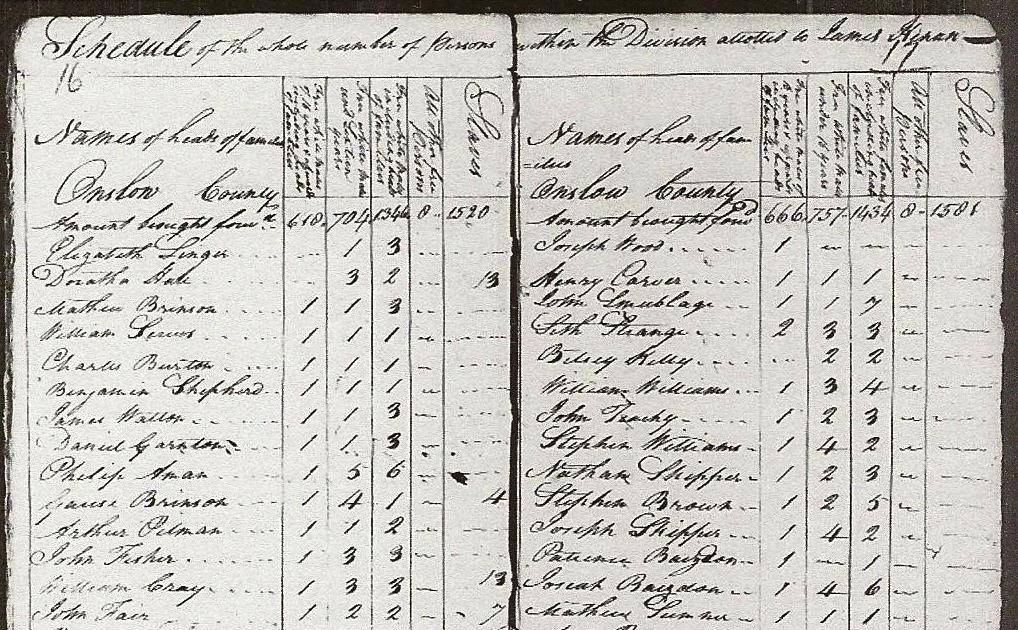 Schedule of the whole number of Persons within the Division alloted to James Kenan
16
17
Names of heads of families
Free white males of 16 years & upwards including heads of families
Free white males under Sixteen years
Free white females including heads of families
All other free Persons
Slaves
Onslow County
Amount brought forwd 618 704 1346 8 1520
Elizabeth 1 3
Doratha 3 2 13
Mathew Brinson 1 1 3
William Lewis 1 1 1
Charles Burton 1 1 1
Benjamin Shepherd 1 1 1
James Walton 1 1 3
Daniel 1 1 3
Philip Aman 1 5 6
Gause Brinson 1 4 1 4
Arthur Pitman 1 1 2
John Fisher 1 3 3
William Gray 1 3 3 13
John Fair 1 2 2 7
Names of heads of families
Free white males of 16 years & upwards including heads of families
Free white males under 16 years
Free white females including heads of families
All other free Persons
Slaves
Onslow County
Amount brought forwd 666 757 1434 8 1581
Joseph Wood 1
Henry Carver 1 1 1
John 1 1 7
Seth Strange 2 3 3
Betsey Kelly 2 2
William Williams 1 3 4
John 1 2 3
Stephen Williams 1 4 2
Nathan Skipper 1 2 3
Stephen Brown 1 2 5
Joseph Skipper 1 4 2
Patience 1 1
Josiah 1 4 6
Mathew 1 1 1